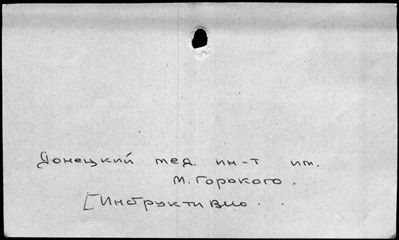 Донецкий мед. ин-т им.
М. Горького.
[Инструктивно . .